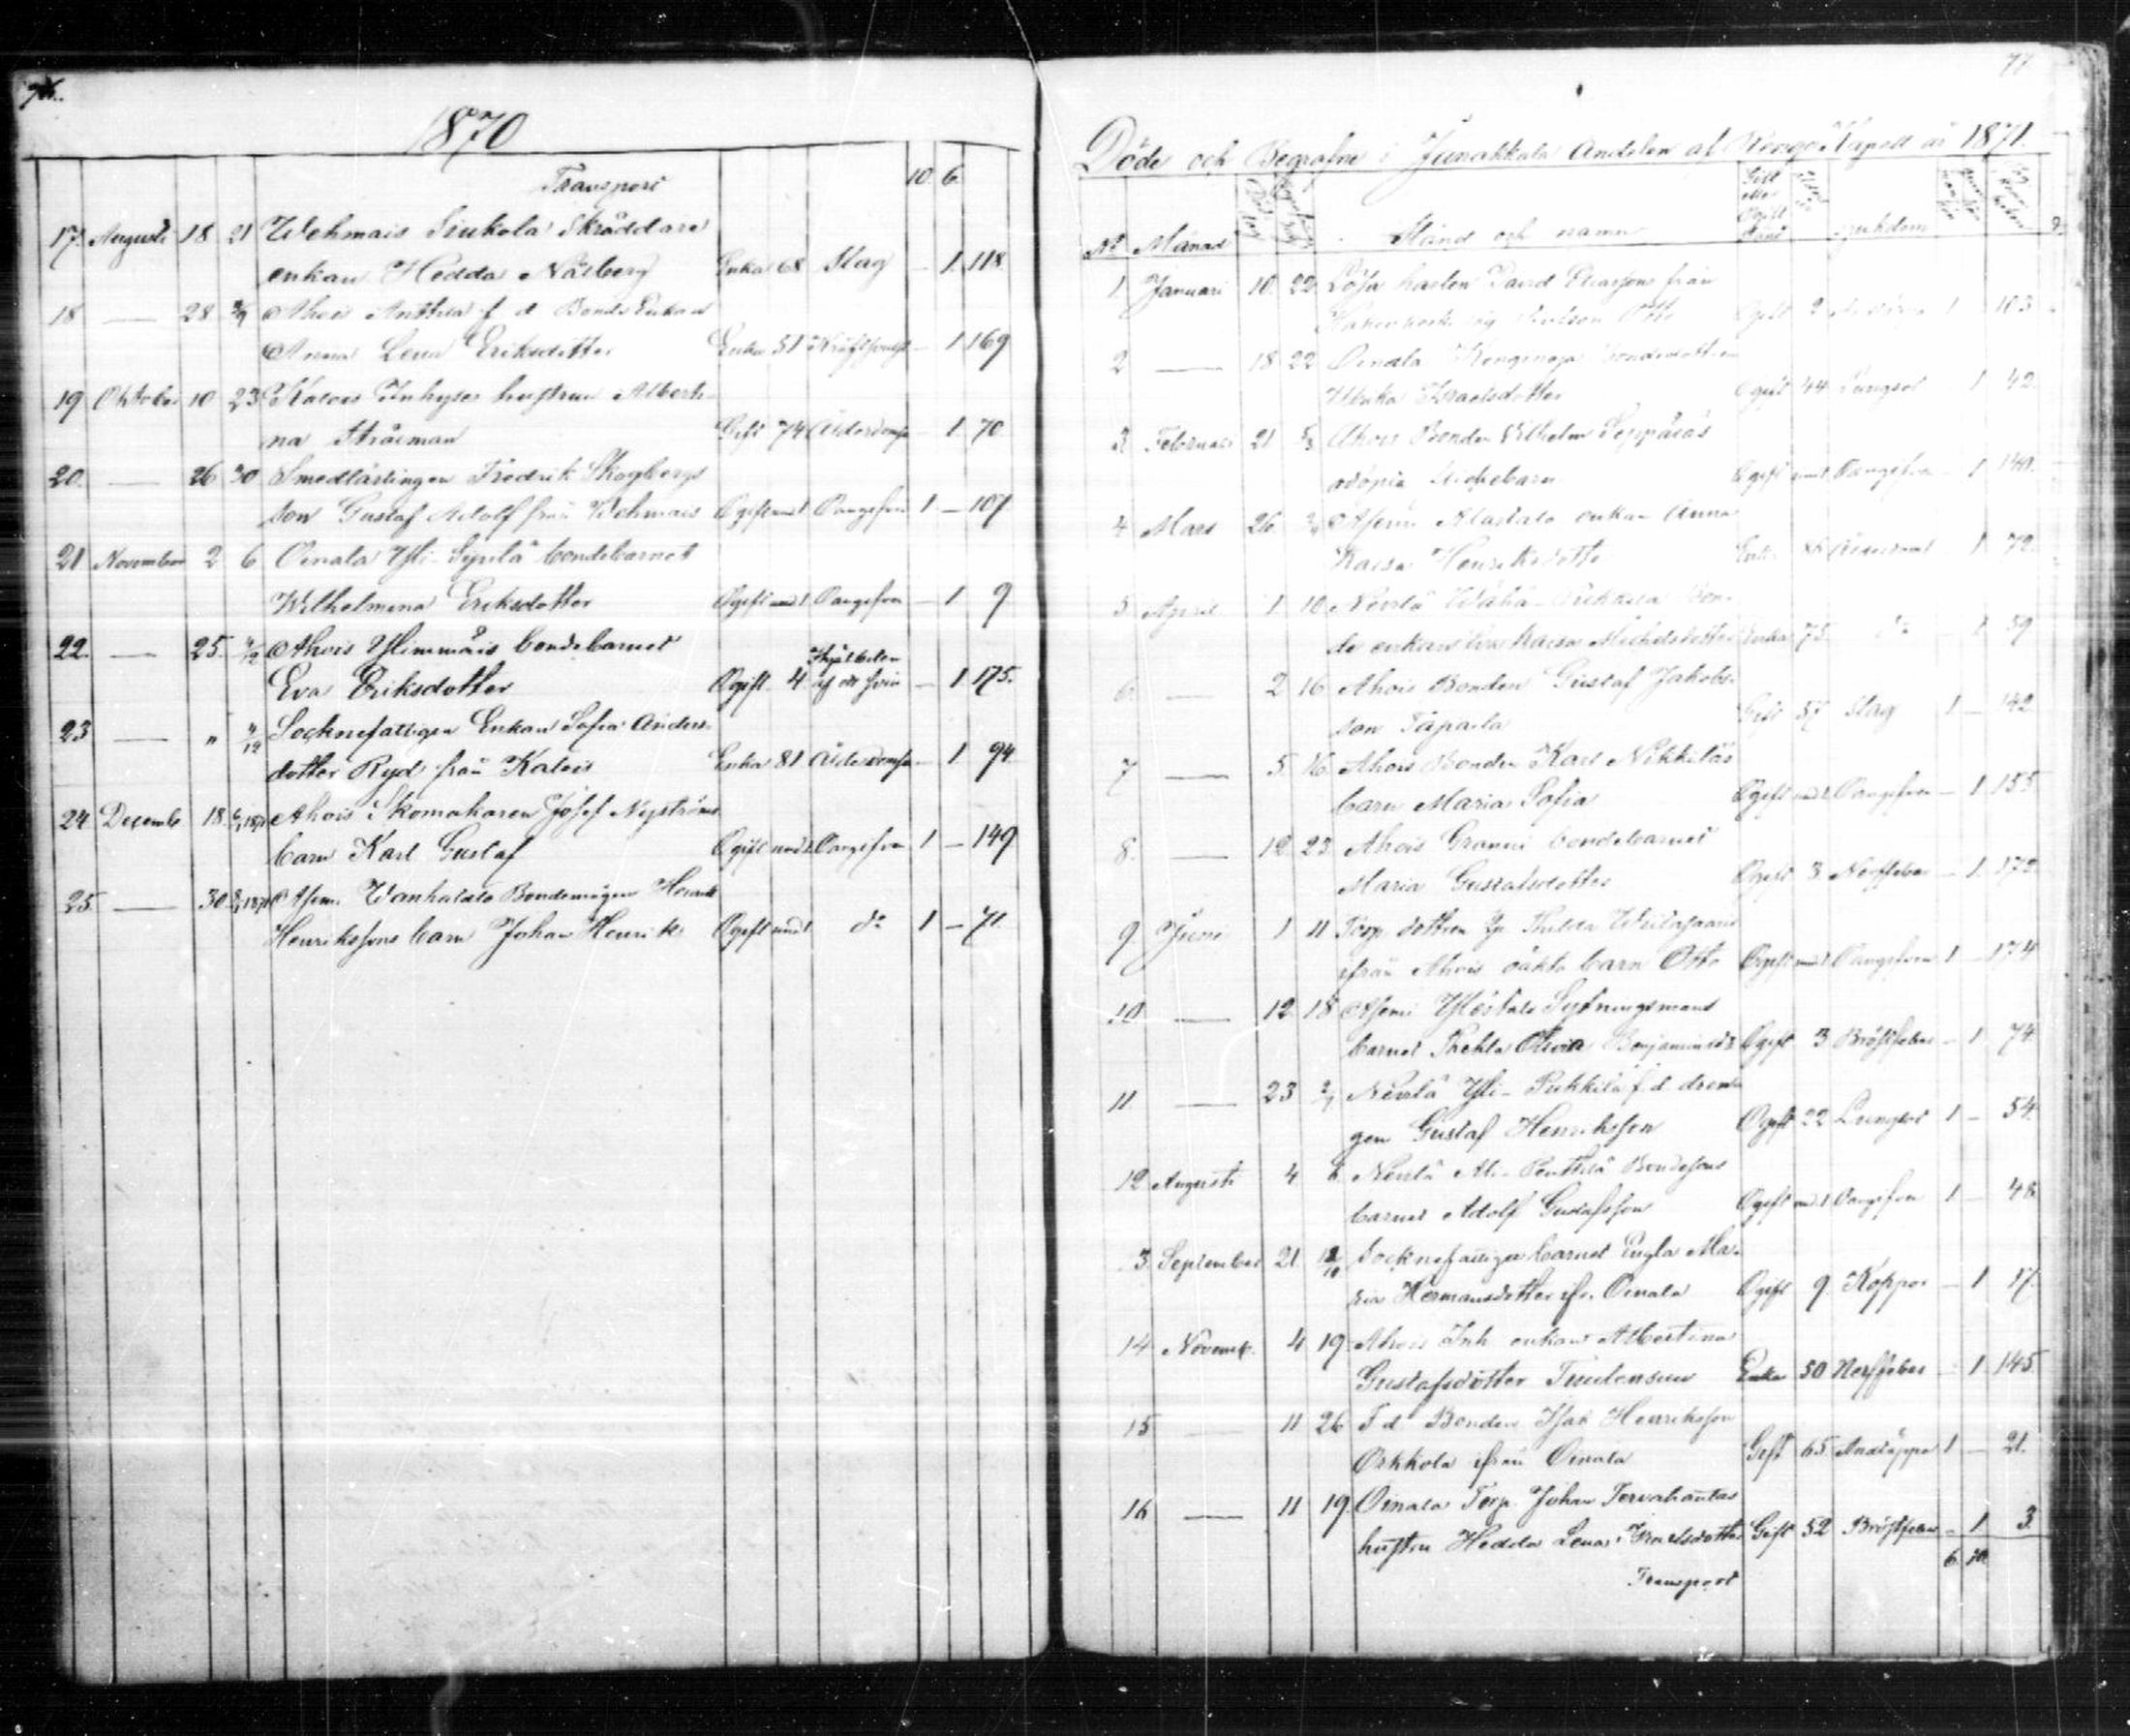 1870
Transport 10 6
17. Augusti 18 21 Wehmais Sinkola Skräddare
enkan Hedda Nälberg Enka 68 Slag – 1 118
18 — 28 Ahois Anttila f d Bonde Enkan
Anna Lena Eriksdotter Enka 51 – 1 169
19 Oktober 10 23 Kalois Inhyses hustrun Alberti-
na Stråcman Gift 74 Ålderdoms – 1 70
20. — 26 30 Smedlärlingen Fredrik Skogbergs
son Gustaf Adolf från Wehmais Ogift und 1 Oangifven 1 – 107
21 November 2 6 Oinala Yli-Seppilä bondebarnet
Wilhelmina Eriksdotter Ogift und 1 Oangifven – 1 9
22. — 25. 4/12 Ahois Ylimmäis bondebarnet
Eva Eriksdotter Ogift 4 – 1 175.
23 — " 4/12 Socknefattigen Enkan Sofia Anders-
dotter Ryd från Kalois Enka 81 Ålderdoms – 1 94
24 Decemb. 18. Ahois Skomakaren Josef Nyströms
barn Karl Gustaf Ogift und 1 Oangifven 1 – 149
25. — 30 Wanhatalo Bondemågen Henrik
Henrikssons barn Johan Henrik Ogift und 1 do 1 – 71.
77
Döde och Begrafne i Janakkala Andelen af Rengo Kapell år 1871.
No Månad Stånd och namn Gift eller Ogift sjukdom
1 Januari 10. 22 Lösa karlen David Eliassons från
Otto Ogift 2 1 103
2 — 18 22 Oinala Kenginoja bondedottren
Ulrika Israelsdotter Ogift 44 Lungsot 1 42.
3 Februari 21 Ahois Bonden Wilhelm Seppäläs
odöpta barn Ogift und 1 Oangifven – 1 140.
4 Mars 26. Klastalo enkan Anna
Kaisa Henriksdotter Enka 1 72.
5 April 1. 10 Nevilä Wähä-Pukkila Bon-
de enkan Eva Kaisa Michelsdotter Enka 75. do – 1 59
6. — 2 16 Ahois Bonden Gustaf Jakobs-
son Tapaila Gift 57 Slag 1 – 142
7 — 5. 16 Ahois Bonden Karl Nikkiläs
barn Maria Sofia Ogift und 1 Oangifven – 1 155
8. — 12 23 Ahois Granni bondebarnet
Maria Gustafsdotter Ogift 3 Nerffeber – 1 172
9 Juni 1 11 Torp dottren
ifrån Ahois oäkta barn Otto Ogift und 1 Oangifven 1 – 174
10 — 12 18 Sytningsmans
barnet Thekla Olivia Benjaminsdr Ogift 3 Bröstfeber – 1 74.
11 — 23 Nevilä Yli-Pukkila f.d. drän-
gen Gustaf Henriksson Ogift 22 Lungsot 1 – 54.
12 Augusti 4 6. Nevilä Ali-Penttilä Bondesons
barnet Adolf Gustafsson Ogift und 1 Oangifven 1 – 48
3. September 21. Socknefattigen barnet Engla Ma-
ria Hermansdotter ifr. Oinala Ogift 9 Koppor – 1 17.
14 Novemb. 4 19. Ahois Inh enkan Albertina
Gustafsdotter Tuulensuu Enka 50 Nerffeber – 1 145
15 11 26 F d Bonden Isak Henriksson
Orkkola ifrån Oinala Gift 65 Andtäppa 1 – 21.
16 — 11 19. Oinala Torp. Johan Tervahautas
hustru Hedda Lena Karlsdotter Gift 52 Bröstfeber – 1 3.
Transport 6. 10